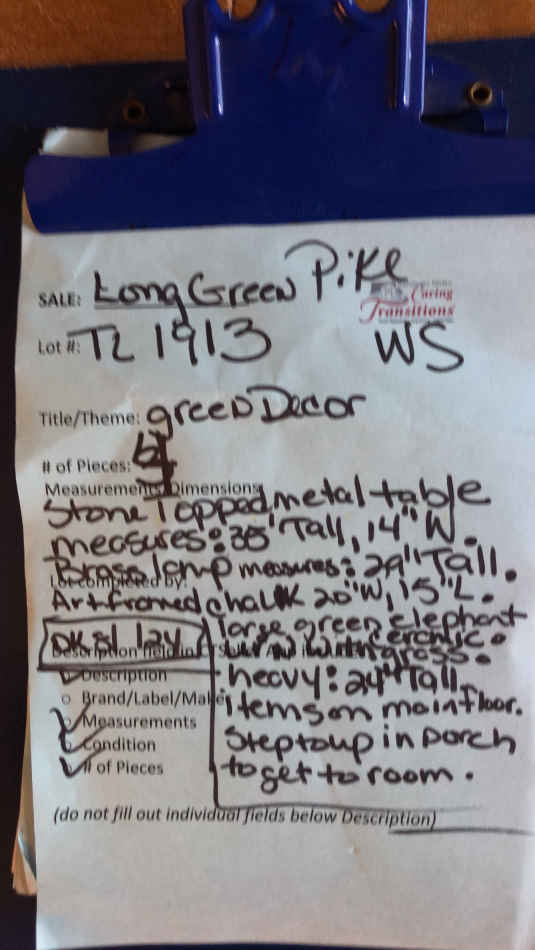 SALE: Long Green Pike
Caring
Transitions
Lot #: TL 1913 WS
Title/Theme: green Decor
# of Pieces: 4
Measurements/Dimensions
Stone Topped metal table
measures: 35" Tall, 14" W.
Brass lamp measures: 29" Tall.
Lot completed by:
Art framed chalk 20"W, 15"L.
large green elephant
ceramic.
Description field
heavy: 24" Tall.
Description
Brand/Label/Make
items on main floor.
Measurements
Step to up in porch
Condition
# of Pieces
to get to room.
(do not fill out individual fields below Description)